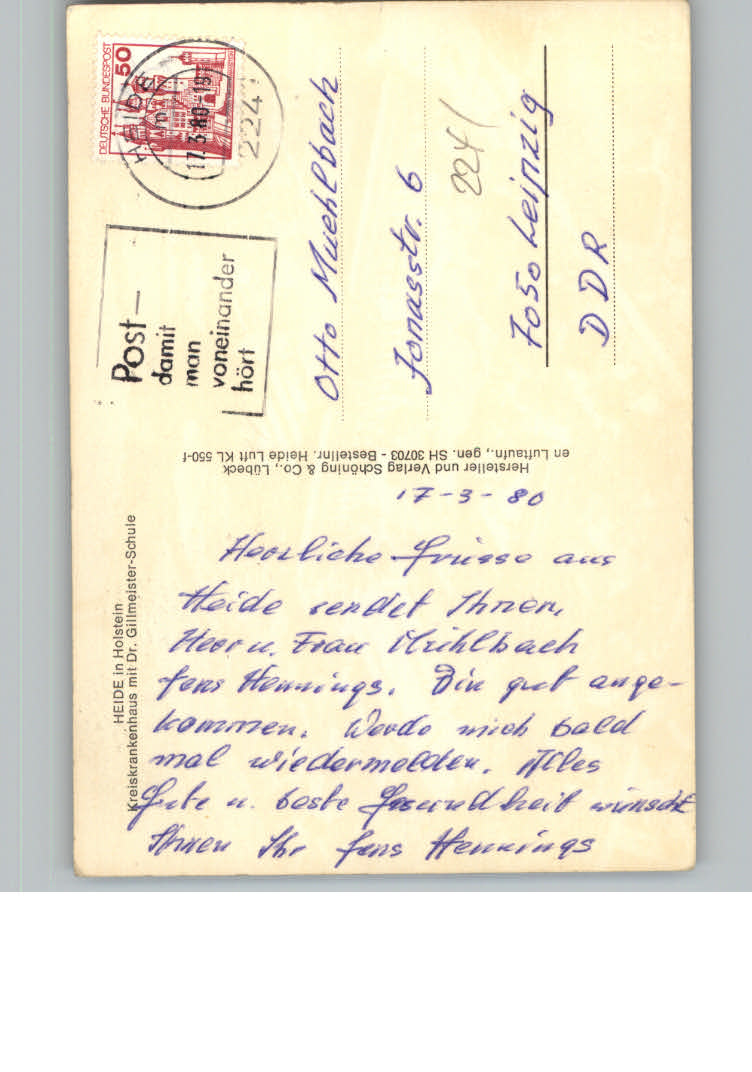 DEUTSCHE BUNDESPOST
50
HEIDE
17.3.80-19
2241
Post—
damit
man
voneinander
hört
Otto Muehlbach
Jonasstr. 6
2241
7050 Leipzig
DDR
Hersteller und Verlag Schöning & Co., Lübeck
en Luftaufn., gen. SH 30703 - Bestellnr. Heide Luft KL 550-f
HEIDE in Holstein
Kreiskrankenhaus mit Dr. Gillmeister-Schule
17-3-80
Herzliche Grüsse aus
Heide sendet Ihnen,
Herr u. Frau Mühlbach
Jens Hennings. Bin gut ange-
kommen. Werde mich bald
mal wiedermelden. Alles
Gute u. beste Gesundheit wünscht
Ihnen Ihr Jens Hennings